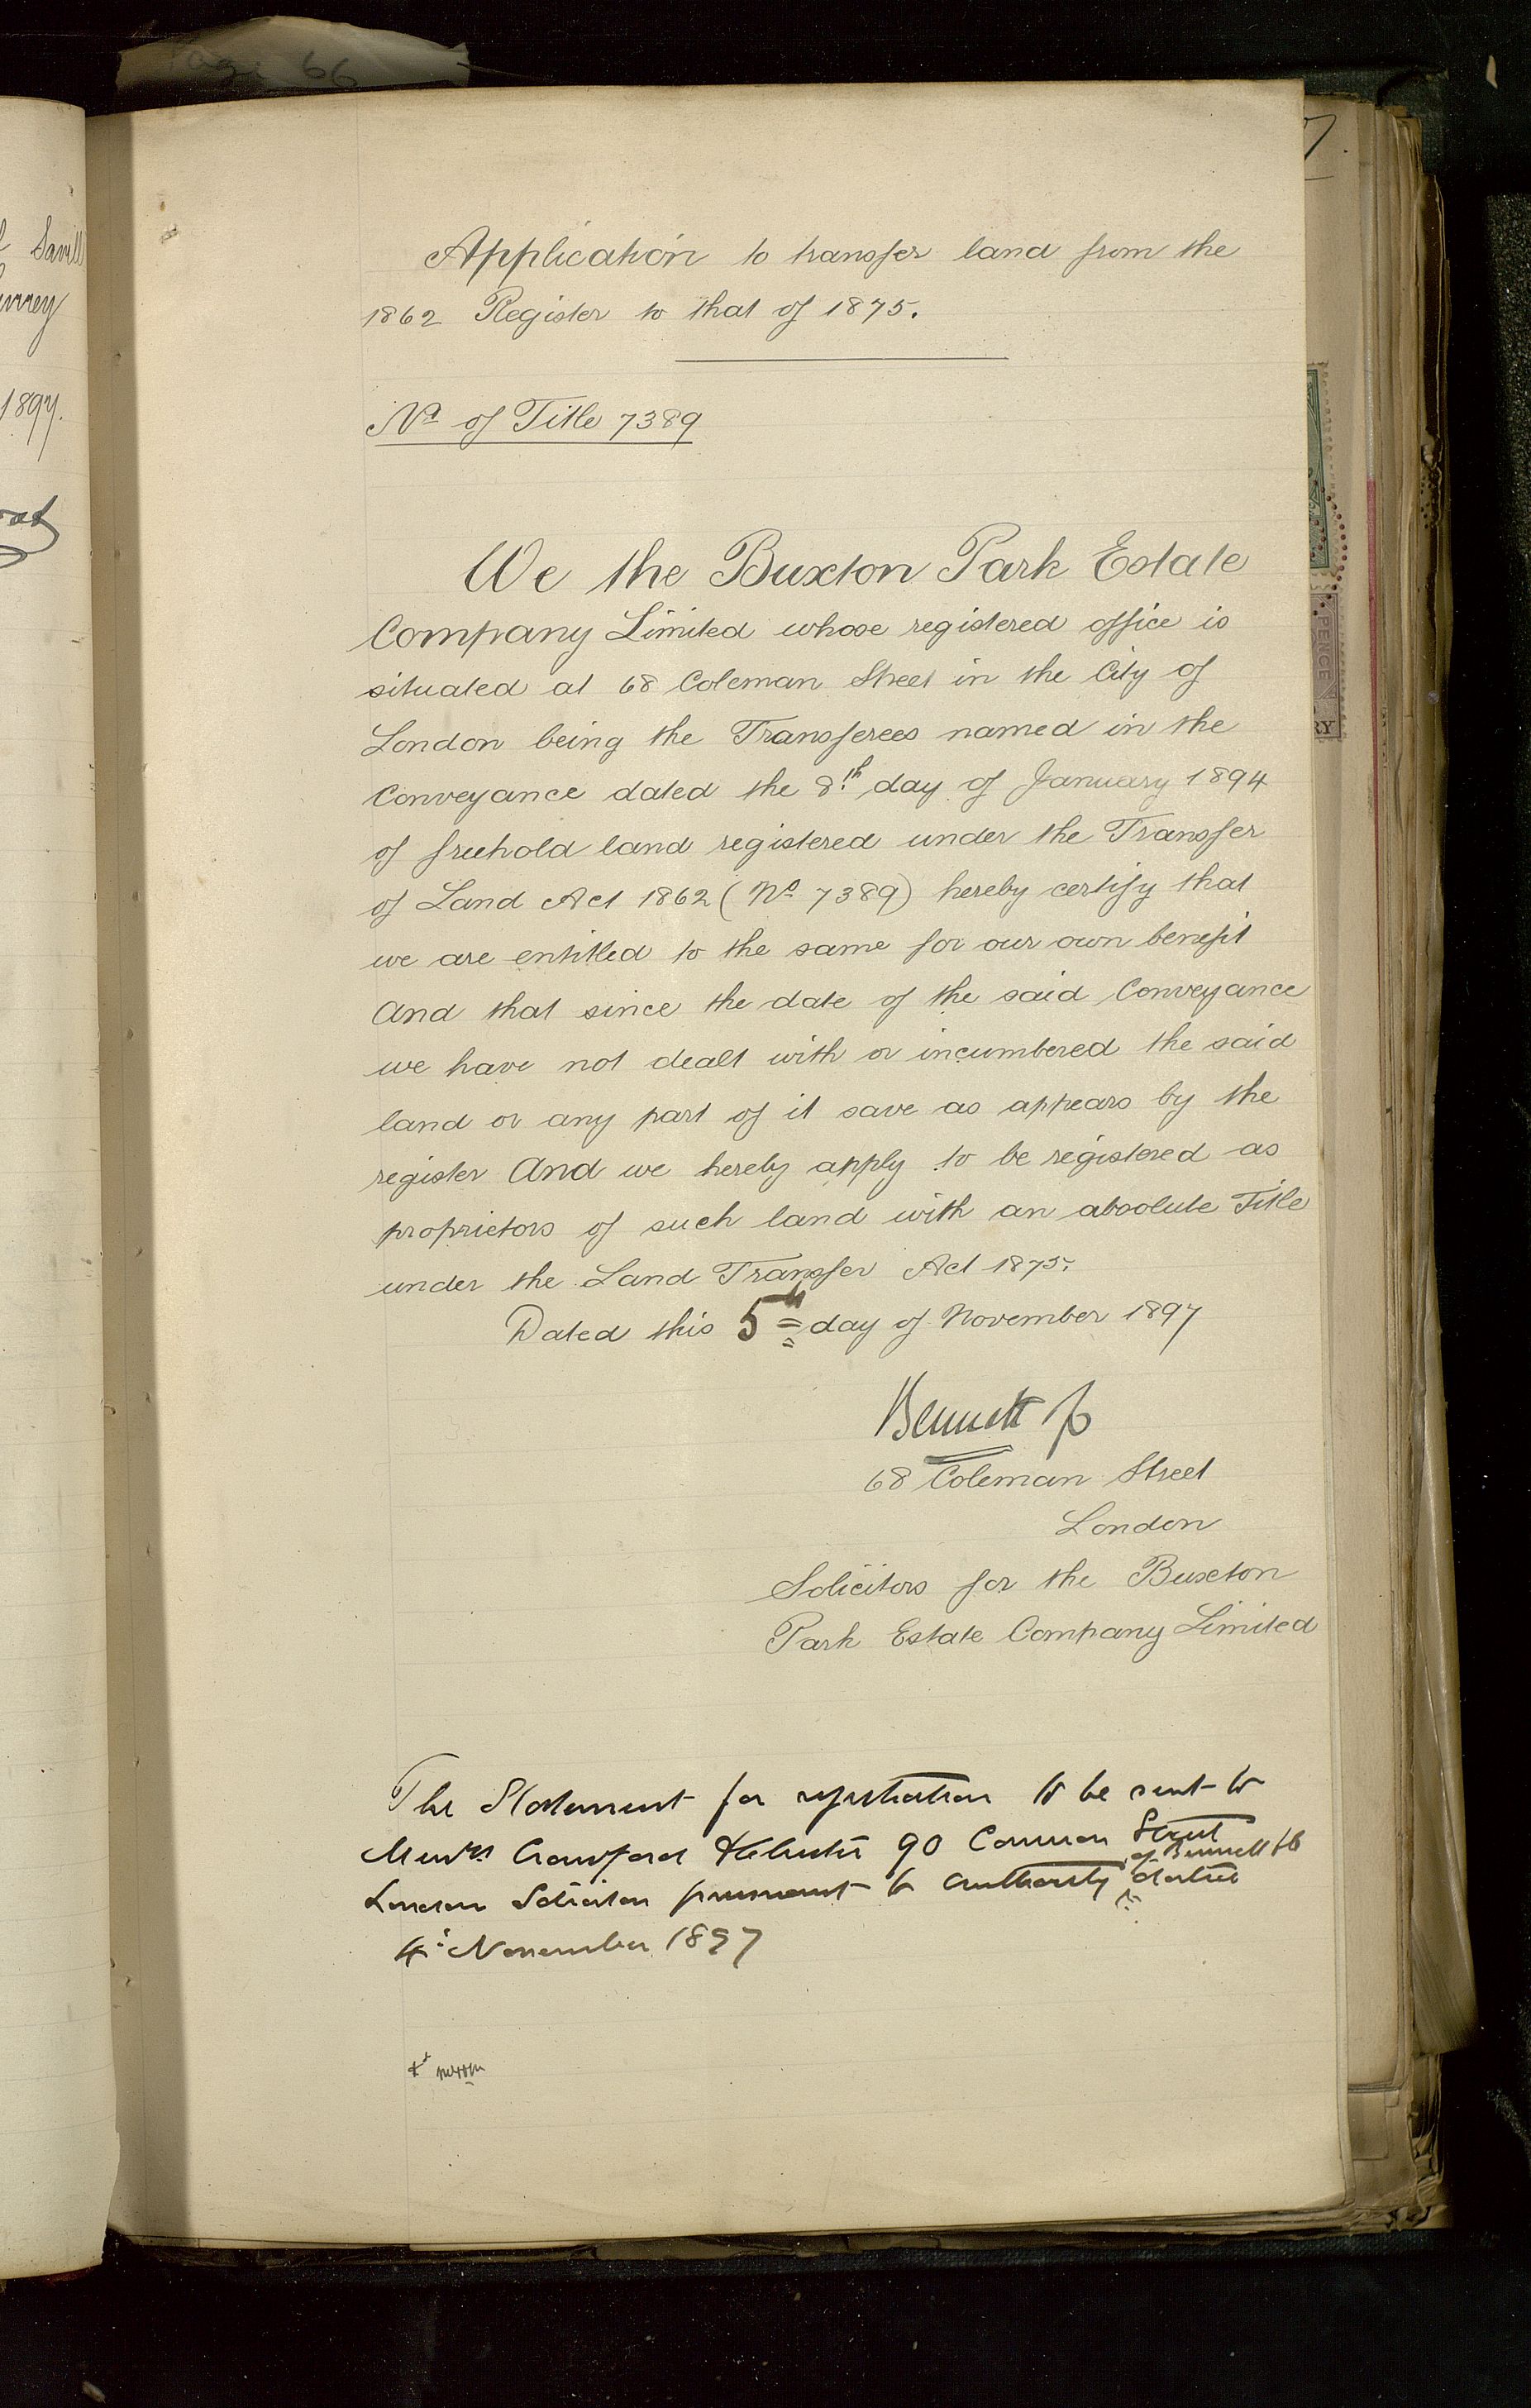 Page 66
Savill
1897.
Application to transfer land from the
1862 Register to that of 1875.
No of Title 7389
We the Buxton Park Estate
Company Limited whose registered office is
situated at 68 Coleman Street in the City of
London being the Transferees named in the
Conveyance dated the 8th day of January 1894
of freehold land registered under the Transfer
of Land Act 1862 (No 7389) hereby certify that
we are entitled to the same for our own benefit
And that since the date of the said Conveyance
we have not dealt with or incumbered the said
land or any part of it save as appears by the
register And we hereby apply to be registered as
proprietors of such land with an absolute Title
under the Land Transfer Act 1875.
Dated this 5th day of November 1897
Bennett & Co
68 Coleman Street
London
Solicitors for the Buxton
Park Estate Company Limited
The Statement for registration to be sent to
Messrs Crawford & Chester 90 Cannon Street
of Bennett & Co
London Solicitors pursuant to authority dated
4th November 1897
PENCE
RY